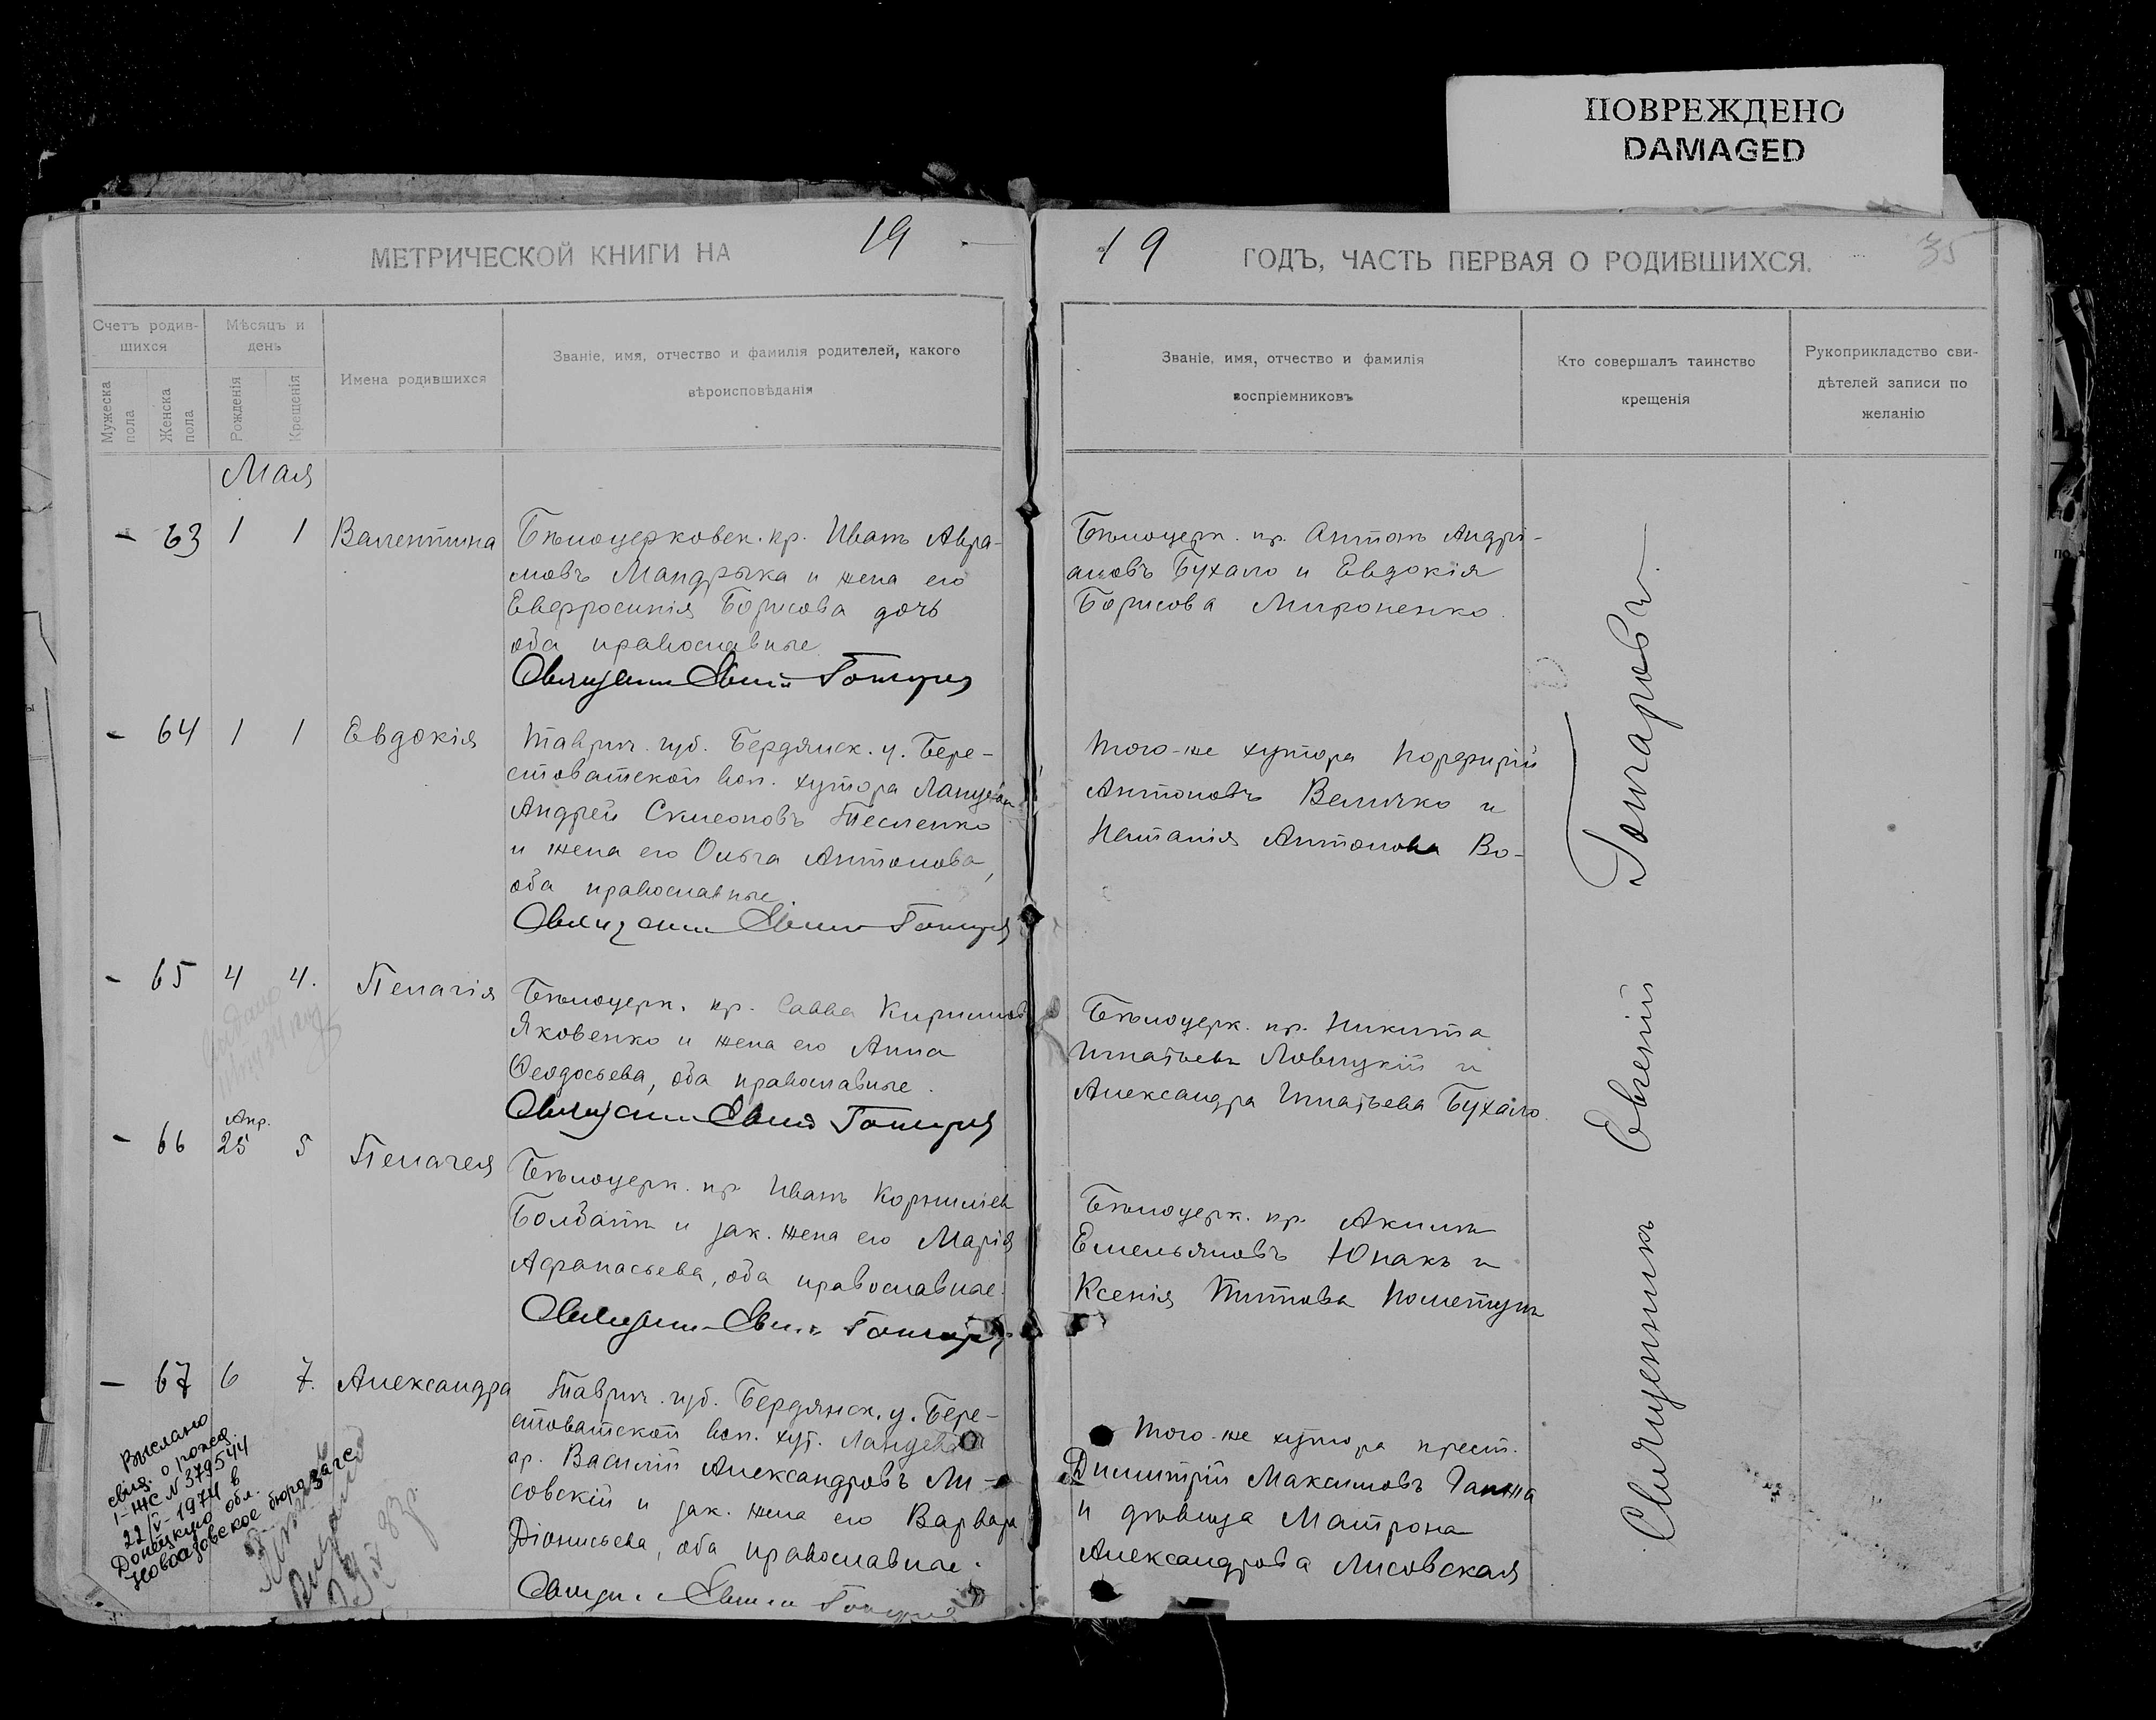 ПОВРЕЖДЕНО
DAMAGED
МЕТРИЧЕСКОЙ КНИГИ НА 19
19 ГОДЪ, ЧАСТЬ ПЕРВАЯ О РОДИВШИХСЯ. 35
Счетъ родив-
шихся
Мужеска пола
Женска пола
Мѣсяцъ и
день
Рожденія
Крещенія
Имена родившихся
Званіе, имя, отчество и фамилія родителей, какого
вѣроисповѣданія
Званіе, имя, отчество и фамилія
воспріемниковъ
Кто совершалъ таинство
крещенія
Рукоприкладство сви-
дѣтелей записи по
желанію
Мая
- 63 1 1 Валентина
Бѣлоцерковск. кр. Иванъ Авра-
мовъ Мандрыка и жена его
Евфросинія Борисова дочь
оба православные
Бѣлоцерк. кр. Антонъ Андрі-
ановъ Бухало и Евдокія
Борисова Мироненко.
- 64 1 1 Евдокія
Таврич. губ. Бердянск. у. Бере-
стоватской вол. хутора
Андрей Симеоновъ Тесленко
и жена его Ольга Антонова,
оба православные
Того-же хутора Порфирій
Антоновъ Величко и
Наталія Антонова Во-
- 65 4 4. Пелагія
Бѣлоцерк. кр. Савва Кирилловъ
Яковенко и жена его Анна
Феодосьева, оба православные.
Бѣлоцерк. кр. Никита
Игнатьевъ Ловицкій и
Александра Игнатьева Бухало.
- 66 Апр. 25 5 Пелагея
Бѣлоцерк. кр. Иванъ Корнилiев
и зак. жена его Марія
Афанасьева, оба православные.
Бѣлоцерк. кр. Акимъ
Емельяновъ Юнакъ и
Ксенія Титова
- 67 6 7. Александра
Таврич. губ. Бердянск. у. Бере-
стоватской вол. хут.
кр. Василій Александровъ Ли-
совскій и зак. жена его Варвара
Діонисьева, оба православные.
Того-же хутора крест.
Димитрій Максимовъ
и дѣвица Матрона
Александрова Лисовская
Священникъ Евгеній Гончаровъ.
Выслано
свид. о рожд.
I-ЖС N 379544
22/V-1974 в
Донецкую обл.
Новоазовское бюро загс